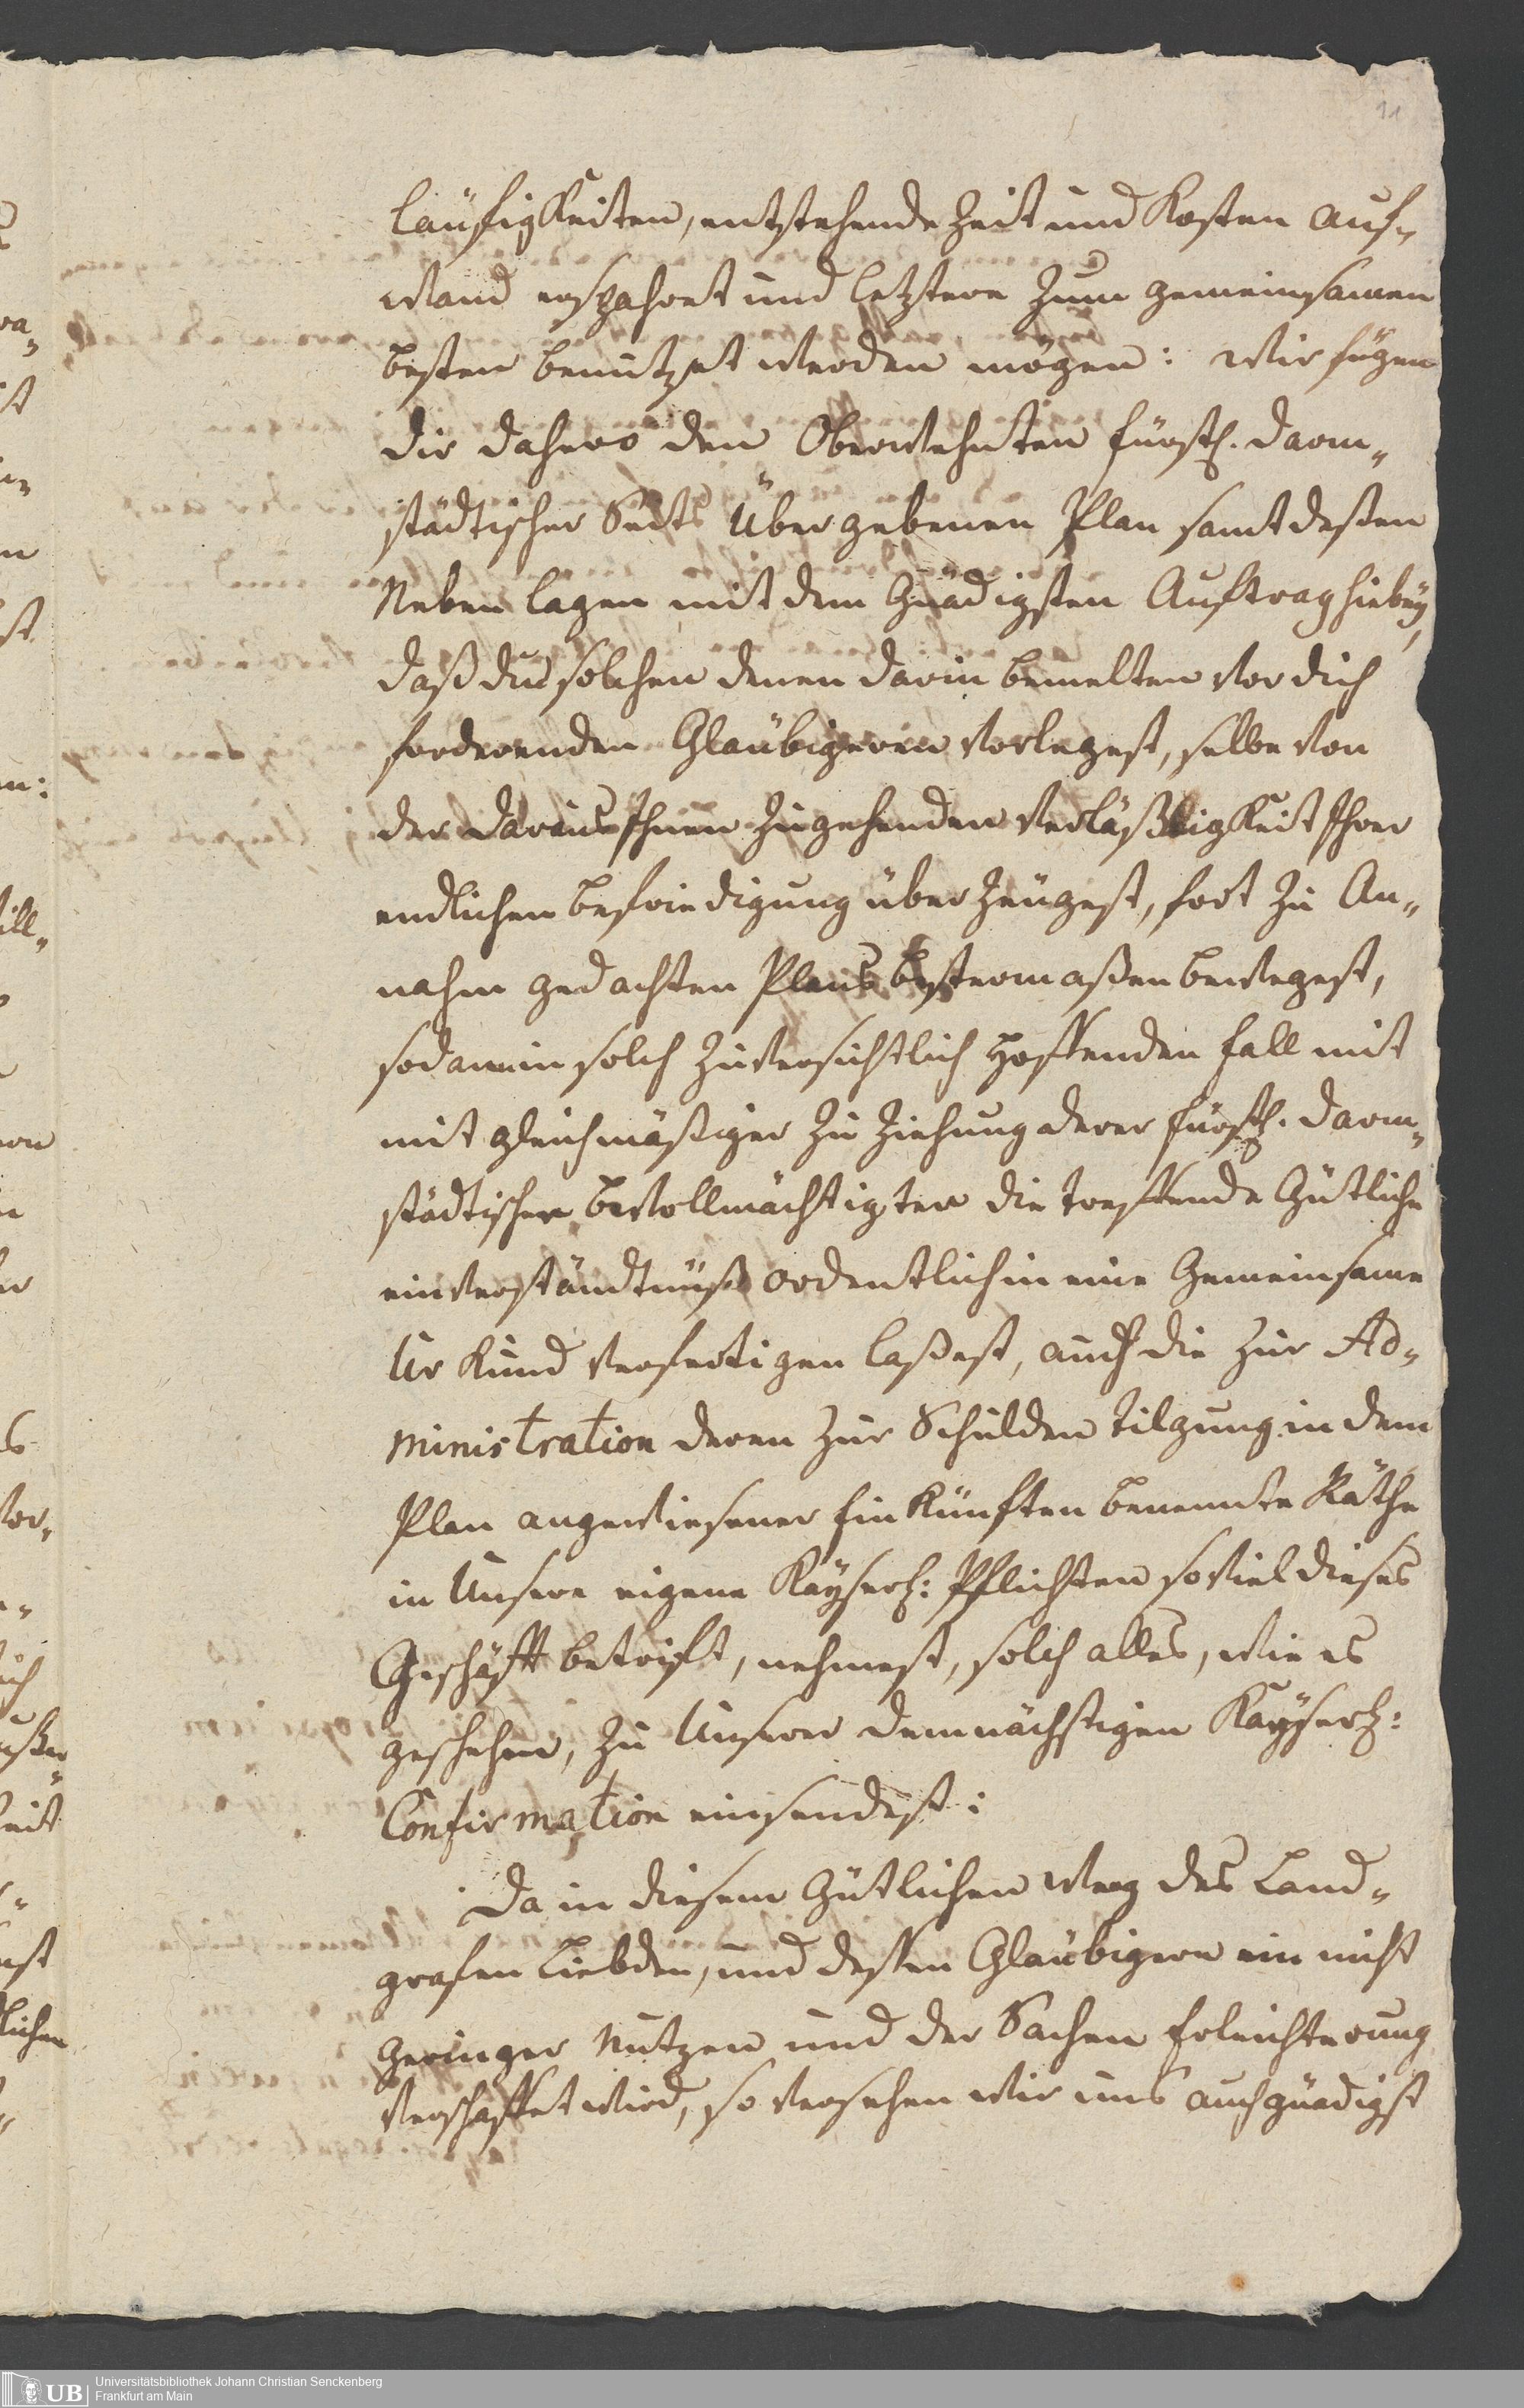 11
läufigkeiten, entstehende Zeit und Kosten auf„
wand erspahret und letztere zum gemeinsamen
besten benutzet werden mögen: wir fügen
dir dahero den Oberwehnten fürstl. darm„
städtischer Seits übergebenen Plan samt deßen
Neben lagen mit dem Gnädigsten Auftrag hiebey,
daß du solchen denen darin bemelten vor dich
forderenden Glaubigeren vorlegest, selbe von
der daraus Ihnen zugehenden verläßigkeit Ihrer
endlichen befriedigung über zeugest, fort zu An„
nahm gedachten Plans bestermaßen bewegest,
sodann in solch zuversichtlich hoffenden fall mit
mit gleichmäßiger zu ziehung derer fürstl. darm„
städtischer bevollmächtigten die treffende Gütliche
einverständtnüß ordentlich in eine Gemeinsame
Ur kund verfertigen laßest, auch die zur Ad„
ministration deren zur Schulden tilgung in dem
Plan angewiesener Einkünften benennte Räthe
in Unsere eigene Kayserl: Pflichten soviel dieses
Geschäfft betrift, nehmest, solch alles, wie es
geschehen, zu Unserer demnächstigen Kayserl:
Confirmation einsendest:
Da in diesem Gütlichen weeg des Land„
grafen Liebden, und dessen Glaubigern ein nicht
geringer Nutzen und der Sachen Erleichterung
verschaffet wird, so versehen wir uns auch gnädigst
UB
Universitätsbibliothek Johann Christian Senckenberg
Frankfurt am Main